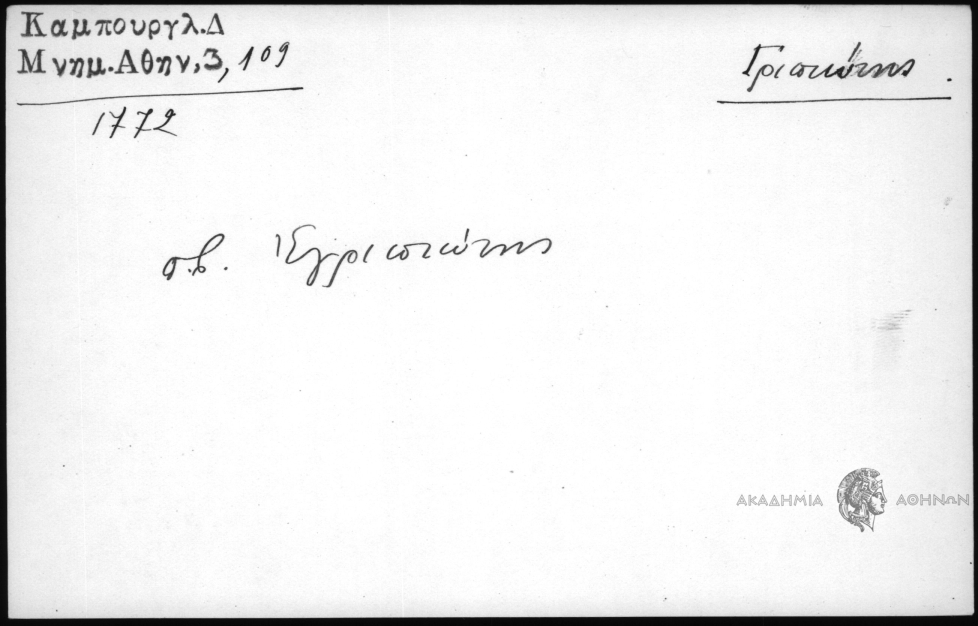 Καμπουργλ.Δ
Μνημ.Αθην.3, 109
Γριπιώτης.
1772
σ.β. Ἐγριπιώτης
ΑΚΑΔΗΜΙΑ ΑΘΗΝΩΝ